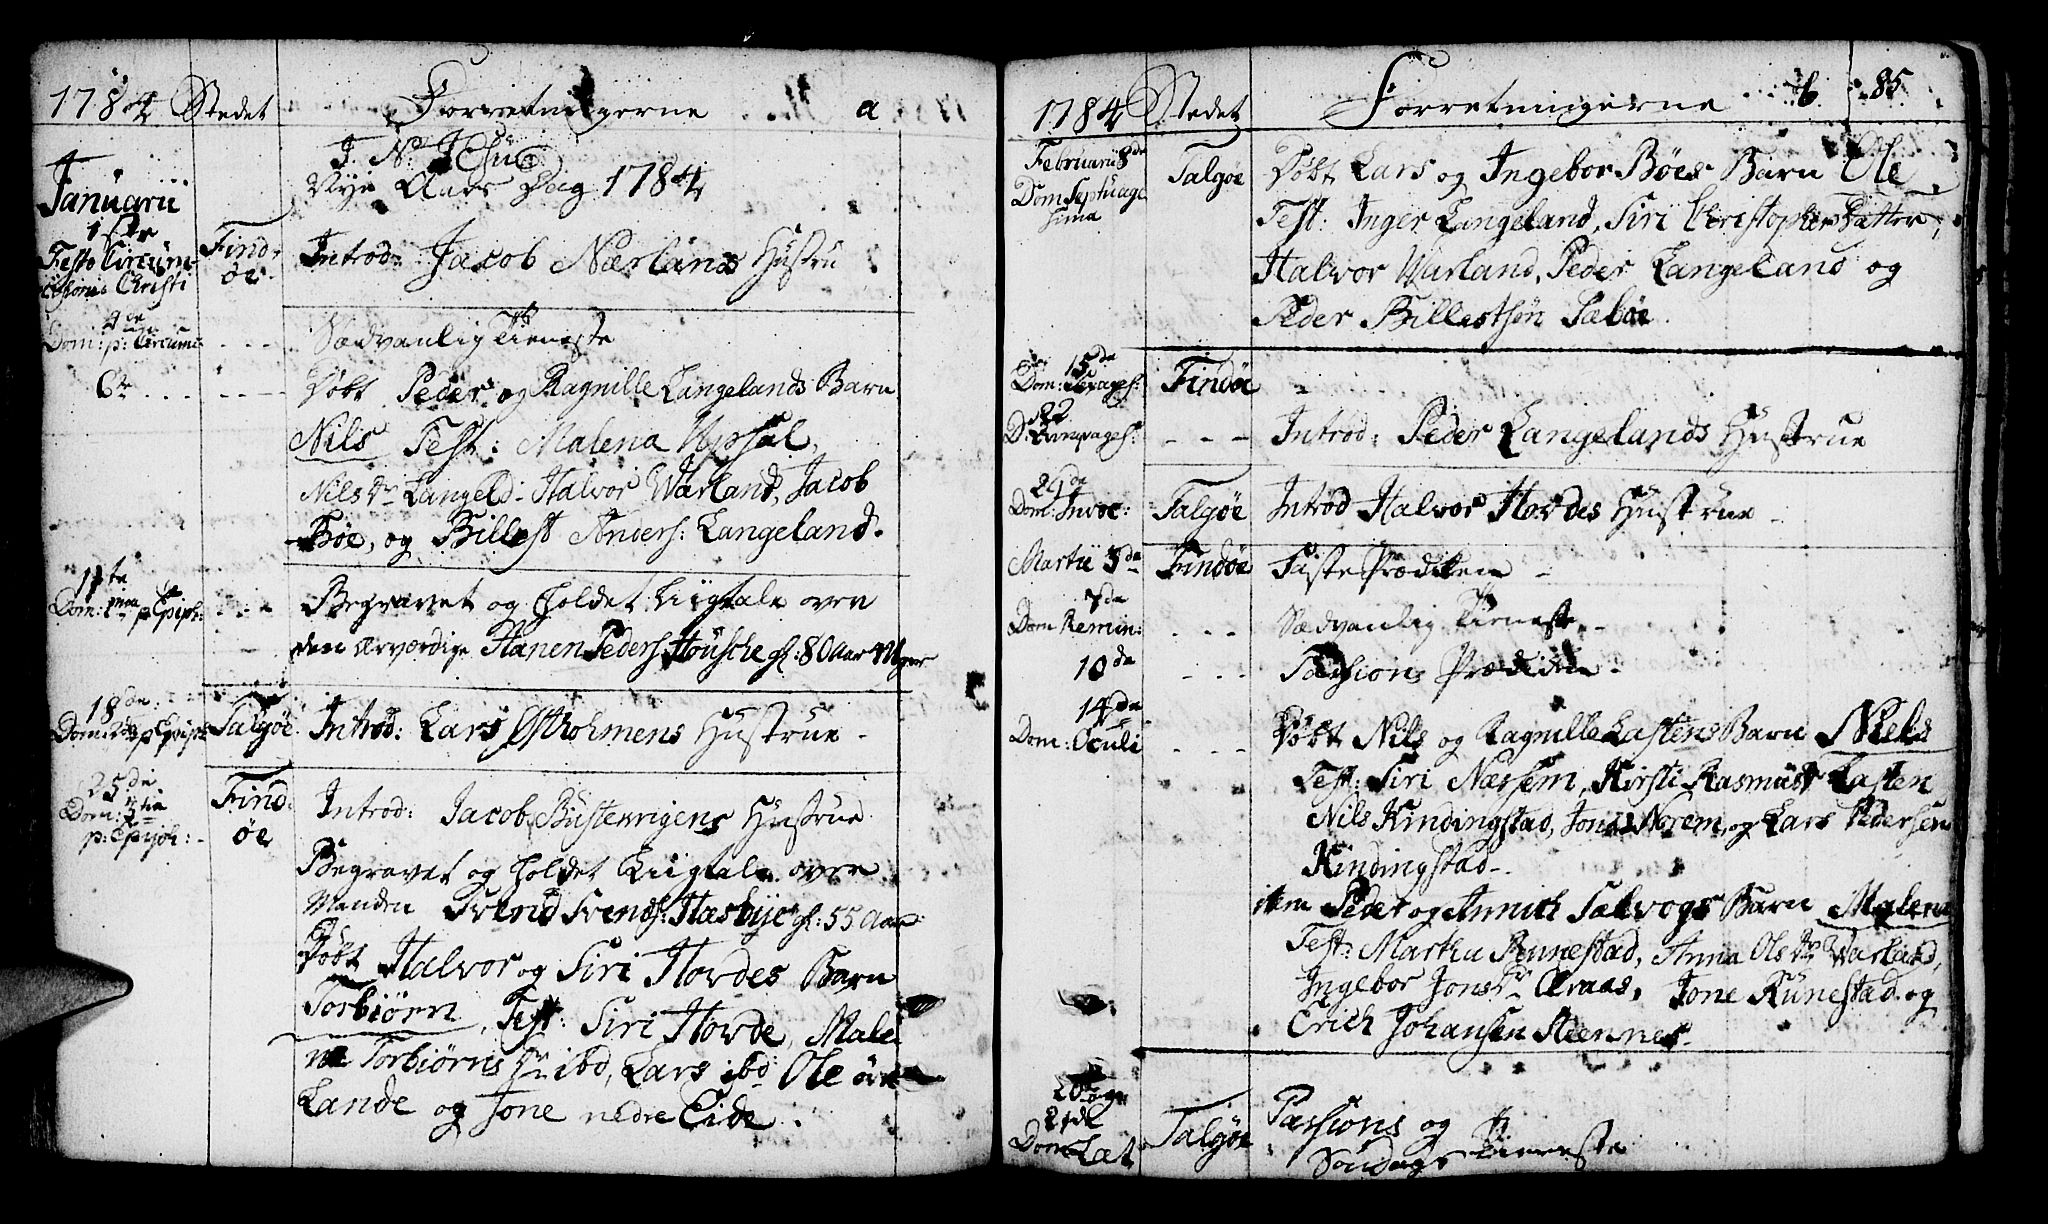 1784 Stedet Forretningerne a
J. N. JEsu
Nye Aars Dag 1784
Januarii
1ste
Festo Circum-
cisionis Christi
Find-
øe
Introd: Jacob Nærlands Hustru
4de
Dom: p: Circumc:
Sædvanlig Tieneste
6te
Døbt Peder og Ragnille Langelands Barn
Nils Test: Malena Upsal,
Nils Dr Langeld: Halvor Warland, Jacob
Bøe, og Billest Anders: Langeland.
11te
Dom: 1ma p. Epiph:
Begravet og holdet Liigtale over
den ærværdige Hanen Peders: Housche gl: 80 Aar
18de
Dom: 2da p Epiph:
Talgøe
Introd: Lars Østholmens Hustrue
25de
Dom: 3tia
p: Epiph:
Find-
øe
Introd: Jacob Bustenrigens Hustrue
Begravet og holdet Liigtale over
Manden Svend Svends: Hæsbye gl: 55 Aar
Døbt Halvor og Siri Hovdes Barn
Torbiørn, Test: Siri Hovde, Male
na Torbiørns Dr ibd, Lars ibd: Ole øv
Lande og Jone nedre Eide.
1784 Stedet Forretningerne b 85
Februarii 8de
Dom Septuage
sima
Talgøe
Døbt Lars og Ingebor Bøes Barn Ole
Test: Inger Langeland, Siri Christopher Datter,
Halvor Warland, Peder Langeland og
Peder Billestsøn Sæbøe.
15de
Dom: Sexages:
Findøe
22
D: Qvinqvages:
Introd: Peder Langelands Hustrue
29de
Dom: Invoc:
Talgøe
Introd Halvor Hovdes Hustrue
Martii 3de
Findøe
Faste Prædiken
7de
Dom Remin:
Sædvanlig Tieneste
10de
Passions Prædiken
14de
Dom: Oculi
Døbt Nils og Ragnille Lastens Barn Niels
Test: Siri Næssem, Kirsti Rasmusd Lasten
Nils Kindingstad, Jonas Norem, og Lars Pedersen
Kindingstad.
item Peder og Annich Sælvogs Barn Malena
Test: Martha Runestad, Anna Ols Dr Warland,
Ingebor Jons Dr Araas, Jone Runestad og
Erich Johansen Steennes.
20de og
21de
Dom Læt
Talgøe
Passions og
Søndags Tieneste